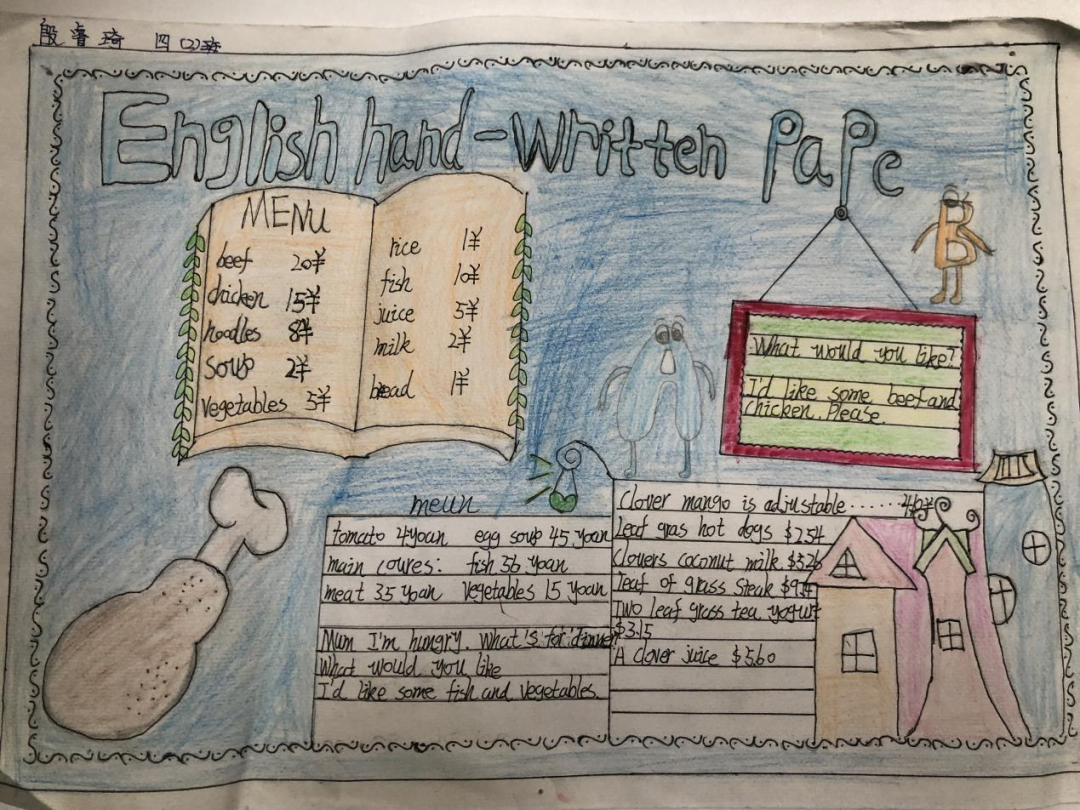 殷睿琦 四(2)班
English hand-written PaPe
MENU
beef 20¥
chicken 15¥
noodles 8¥
soup 2¥
vegetables 5¥
rice 1¥
fish 10¥
juice 5¥
milk 2¥
bread 1¥
B
What would you like?
I'd like some beef and
chicken. Please.
meun
tomato 4yoan egg soup 45 yoan
main coures: fish 56 yoan
meat 35 yoan vegetables 15 yoan
Mum I'm hungry. What's for dinner
What would you like
I'd like some fish and vegetables.
Clover mango is adjustable
Leaf gras hot dogs $254
Clovers coconut milk $326
Teaf of grass steak
Two leaf grass tea yogurt
$3.15
A clover juice $5.60